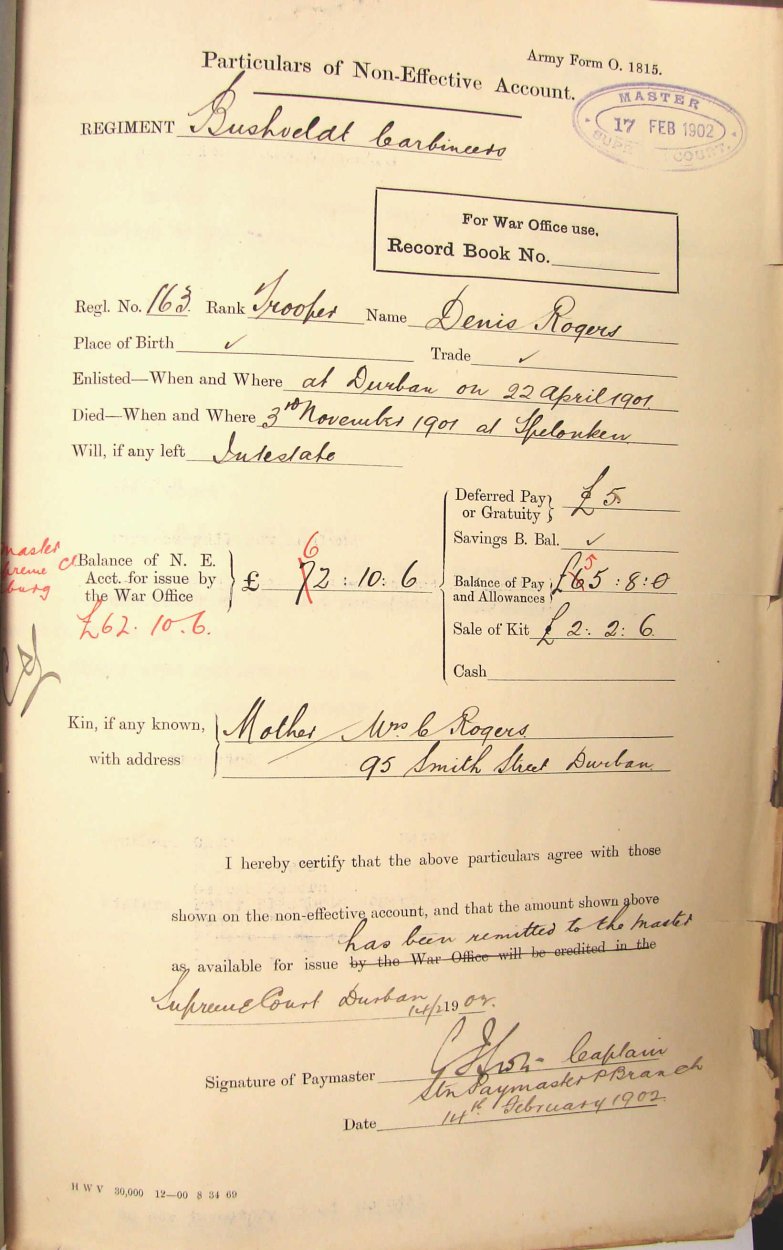 Army Form O. 1815.
Particulars of Non-Effective Account.
MASTER
17 FEB 1902
SUPREME COURT.
REGIMENT Bushveldt Carbineers
For War Office use,
Record Book No.
Regl. No. 163 Rank Trooper Name Denis Rogers
Place of Birth ✓ Trade ✓
Enlisted—When and Where at Durban on 22 April 1901
Died—When and Where 3rd November 1901 at Spelonken
Will, if any left Intestate
Deferred Pay or Gratuity } £ 5
Savings B. Bal. ✓
Master
Supreme Ct
burg
Balance of N. E. Acct. for issue by the War Office } £ 72 : 10 : 6
6
£62. 10. 6.
Balance of Pay and Allowances } £65 : 8 : 0
5
Sale of Kit £ 2 : 2 : 6
Cash
Kin, if any known, with address } Mother Mrs C Rogers
95 Smith Street Durban
I hereby certify that the above particulars agree with those
shown on the non-effective account, and that the amount shown above
has been remitted to the Master
as available for issue by the War Office will be credited in the
Supreme Court Durban 14/2 1902.
Signature of Paymaster Captain
Stn Paymaster P Branch
Date 14th February 1902
H W V 30,000 12—00 8 34 69